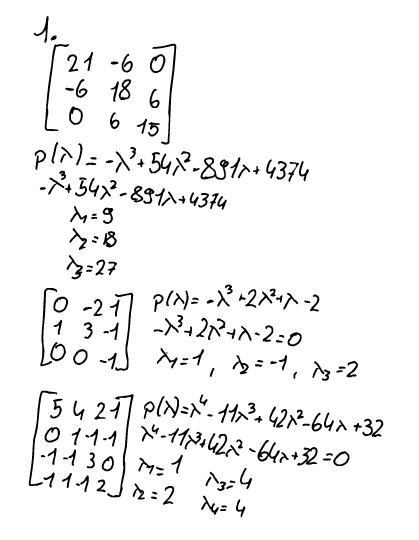 1.
21 -6 0
-6 18 6
0 6 15
p(λ) = -λ³+54λ²-891λ+4374
-λ³+54λ²-891λ+4374
λ₁=9
λ₂=18
λ₃=27
0 -2 1
1 3 -1
0 0 -1
p(λ)= -λ³+2λ²+λ-2
-λ³+2λ²+λ-2=0
λ₁=1, λ₂=-1, λ₃=2
5 4 2 1
0 1 -1 -1
-1 -1 3 0
1 1 -1 2
p(λ)=λ⁴-11λ³+42λ²-64λ+32
λ⁴-11λ³+42λ²-64λ+32=0
λ₁=1
λ₂=2
λ₃=4
λ₄=4